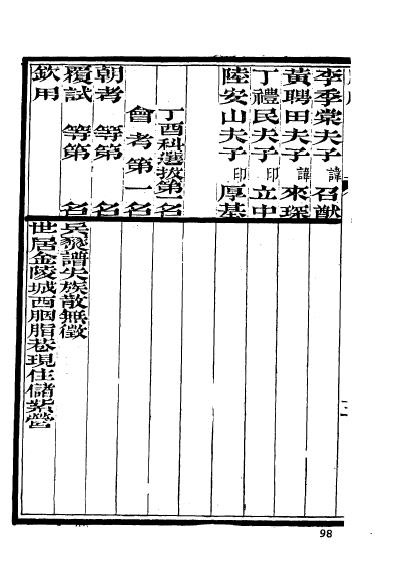 李季棠夫子 諱 召猷
黃聘田夫子 諱 來琛
丁禮民夫子 印 立中
陸安山夫子 印 厚基
丁酉科選拔第一名
會考第一名
朝考 等第 名
覆試 等第 名
欽用
兵燹譜失族散無徵
世居金陵城西胭脂巷現住儲紫營
98